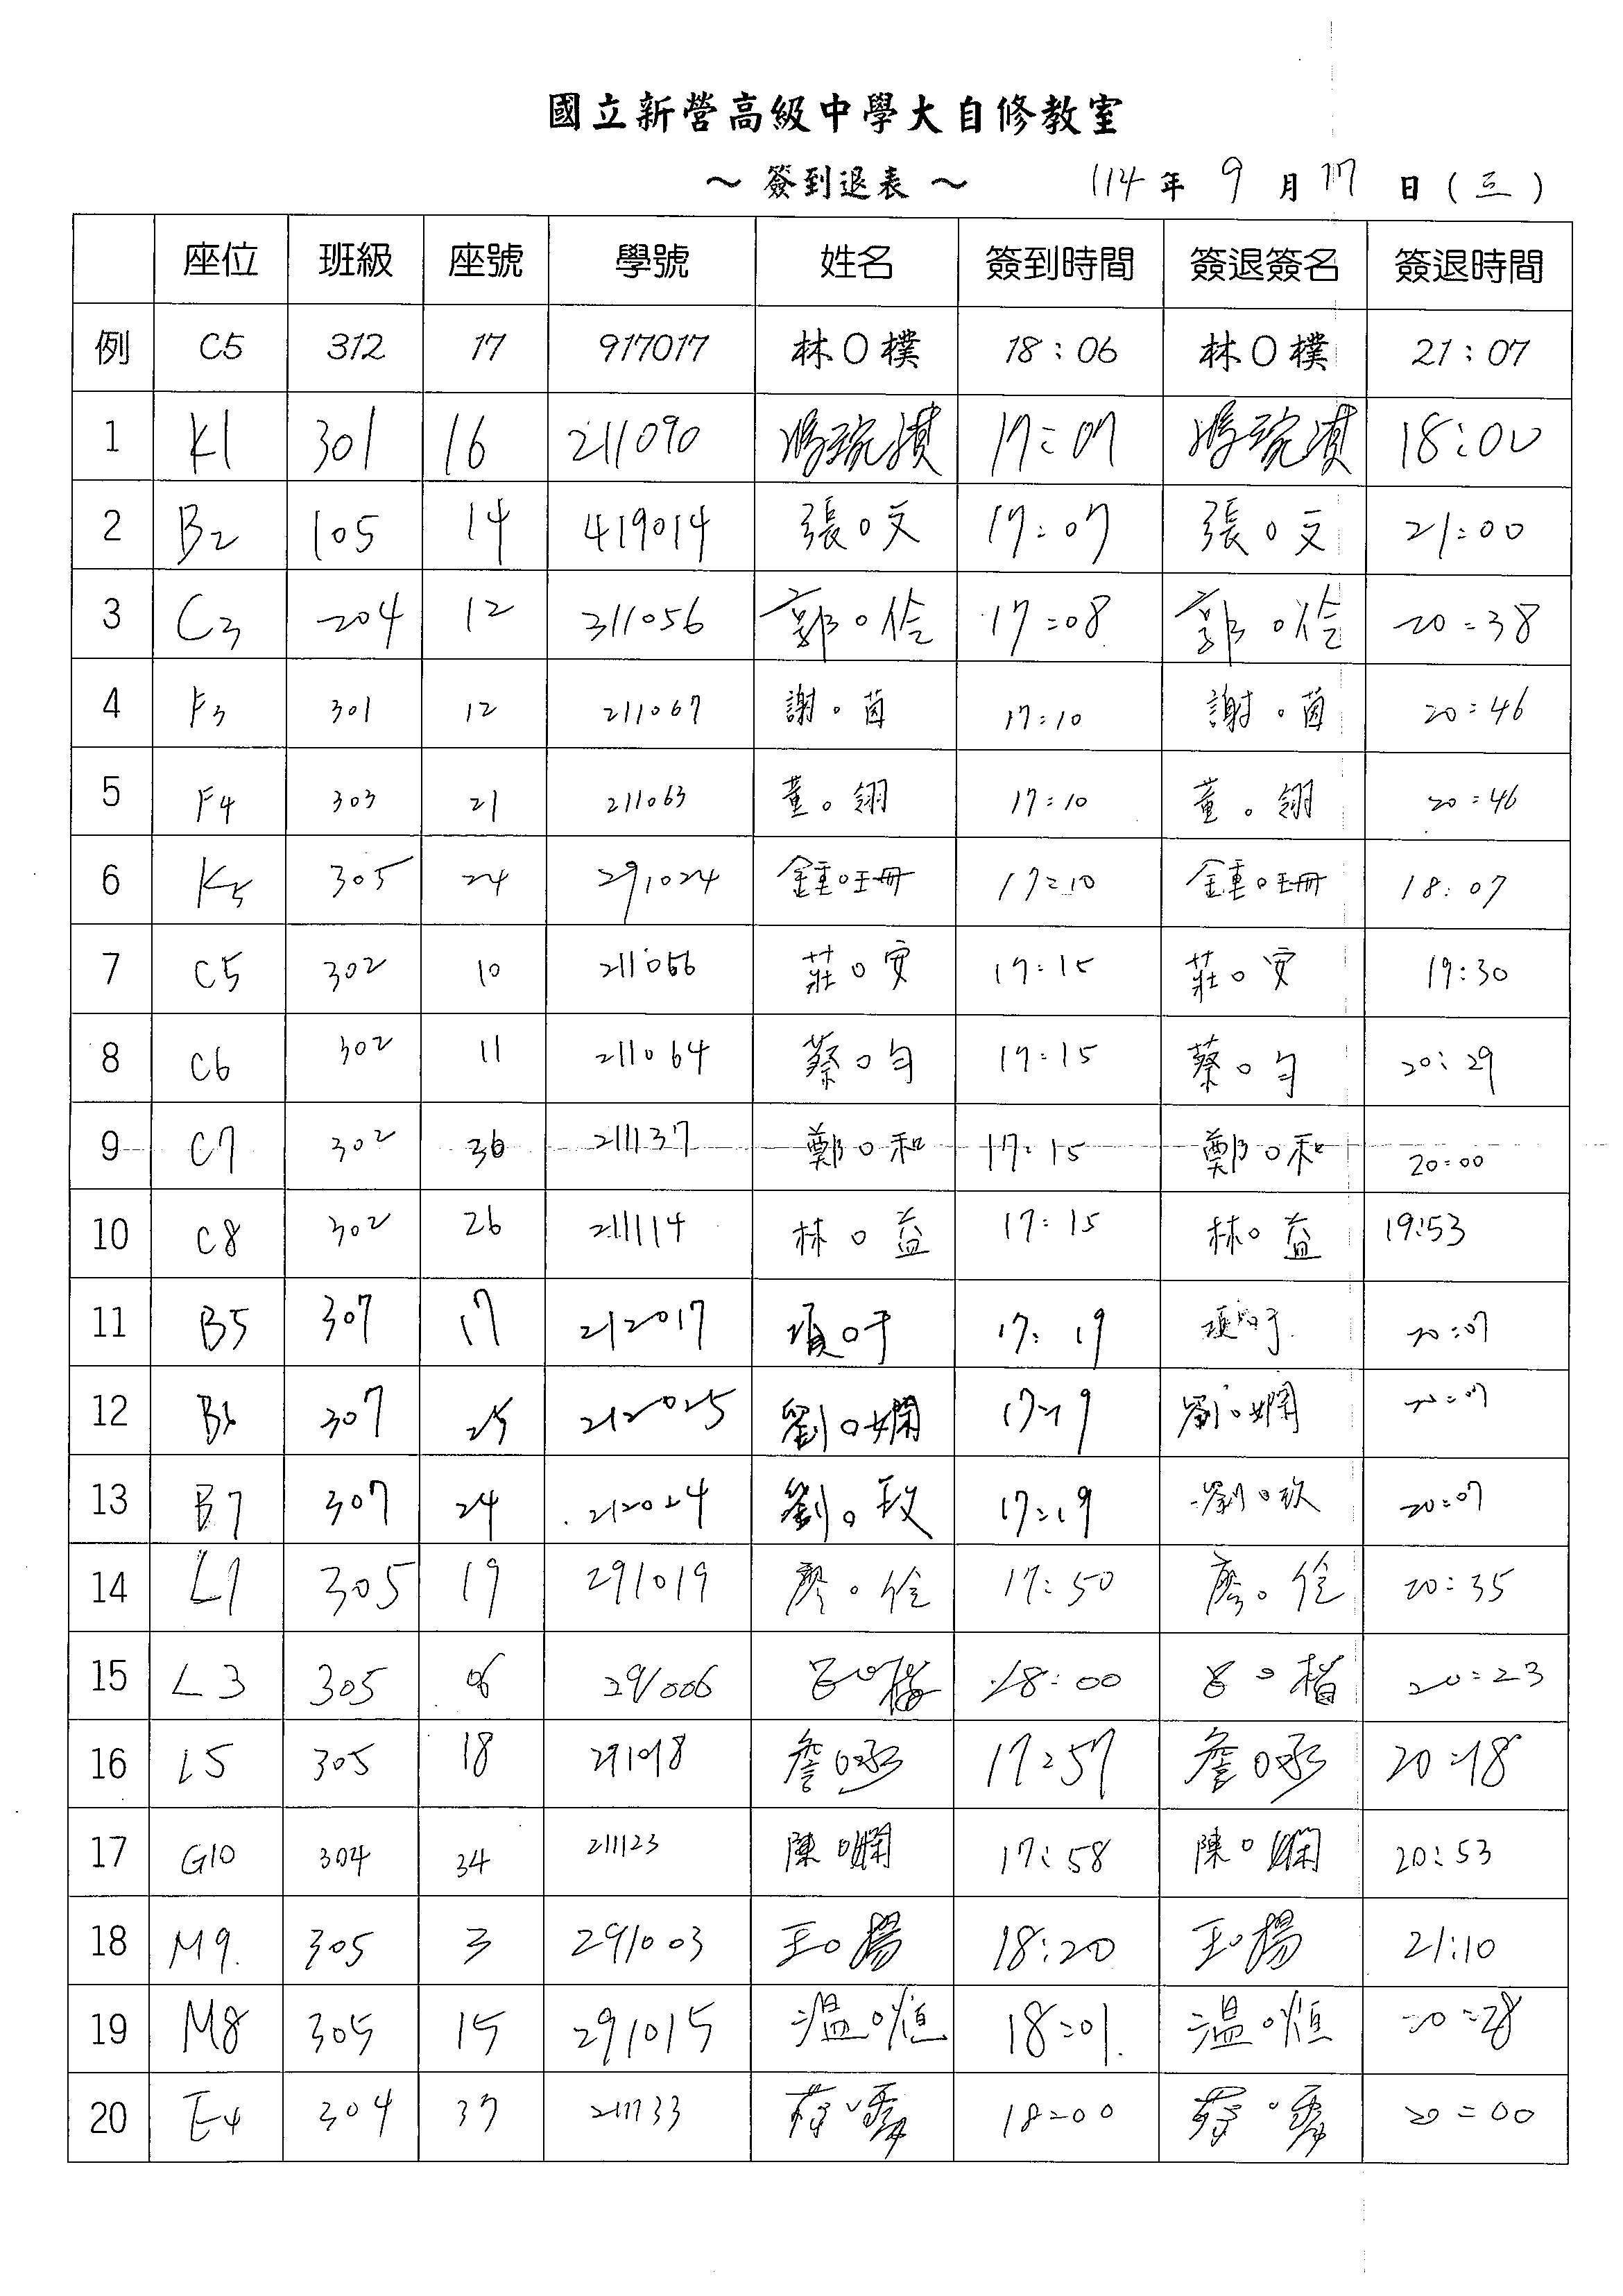 國立新營高級中學大自修教室
～ 簽到退表 ～ 114 年 9 月 17 日 (三)
座位 班級 座號 學號 姓名 簽到時間 簽退簽名 簽退時間
例 C5 312 17 917017 林O樸 18:06 林O樸 21:07
1 K1 301 16 211090 17:07 18:00
2 B2 105 14 419014 張O文 17:07 張O文 21:00
3 C3 204 12 311056 郭O佺 17:08 郭O佺 20:38
4 F3 301 12 211067 謝O茵 17:10 謝O茵 20:46
5 F4 303 21 211063 董O翎 17:10 董O翎 20:46
6 K5 305 24 291024 鍾O珊 17:10 鍾O珊 18:07
7 C5 302 10 211066 莊O安 17:15 莊O安 19:30
8 C6 302 11 211064 蔡O勻 17:15 蔡O勻 20:29
9 C7 302 36 211137 鄭O和 17:15 鄭O和 20:00
10 C8 302 26 211114 林O益 17:15 林O益 19:53
11 B5 307 17 212017 項O于 17:19 項O于 20:07
12 B6 307 25 212025 劉O嫻 17:19 劉O嫻 20:07
13 B7 307 24 212024 劉O玟 17:19 劉O玟 20:07
14 L1 305 19 291019 廖O佺 17:50 廖O佺 20:35
15 L3 305 06 291006 呂O楷 18:00 呂O楷 20:23
16 L5 305 18 291018 詹O丞 17:57 詹O丞 20:18
17 G10 304 34 211123 陳O嫻 17:58 陳O嫻 20:53
18 M9 305 3 291003 王O揚 18:20 王O揚 21:10
19 M8 305 15 291015 溫O恒 18:01 溫O恒 20:28
20 E4 304 37 211133 18:00 20:00